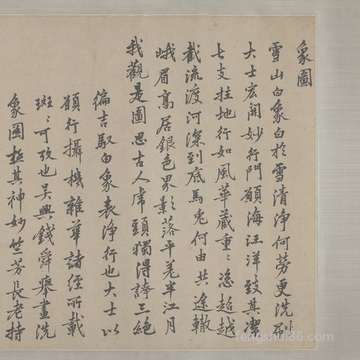 象圖
雪山白象白於雪清淨何勞更洗刷
大士宏開妙行門願海汪洋致其潔
七支拄地行如風華藏重〻恣超越
截流渡河深到底馬兎何由共途轍
峨眉高居銀色界影落平羌半江月
我觀是圖思古人虎頭獨得詩三絕
徧吉馭白象表淨行也大士以
願行攝機雜華諸經所載
斑〻可攷也吳興錢舜舉畫洗
象圖極其神妙竺芳長老持
fengshui86.com